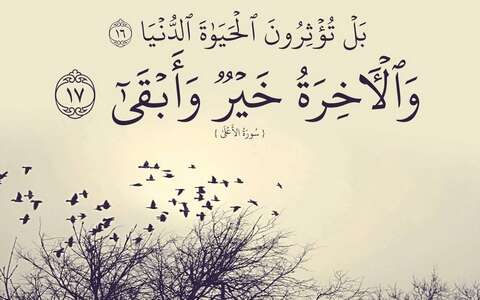 بَلْ تُؤْثِرُونَ ٱلْحَيَوٰةَ ٱلدُّنْيَا ١٦
وَٱلْأٓخِرَةُ خَيْرٌ وَأَبْقَىٰٓ ١٧
{ سُورَةُ الأَعْلَىٰ }